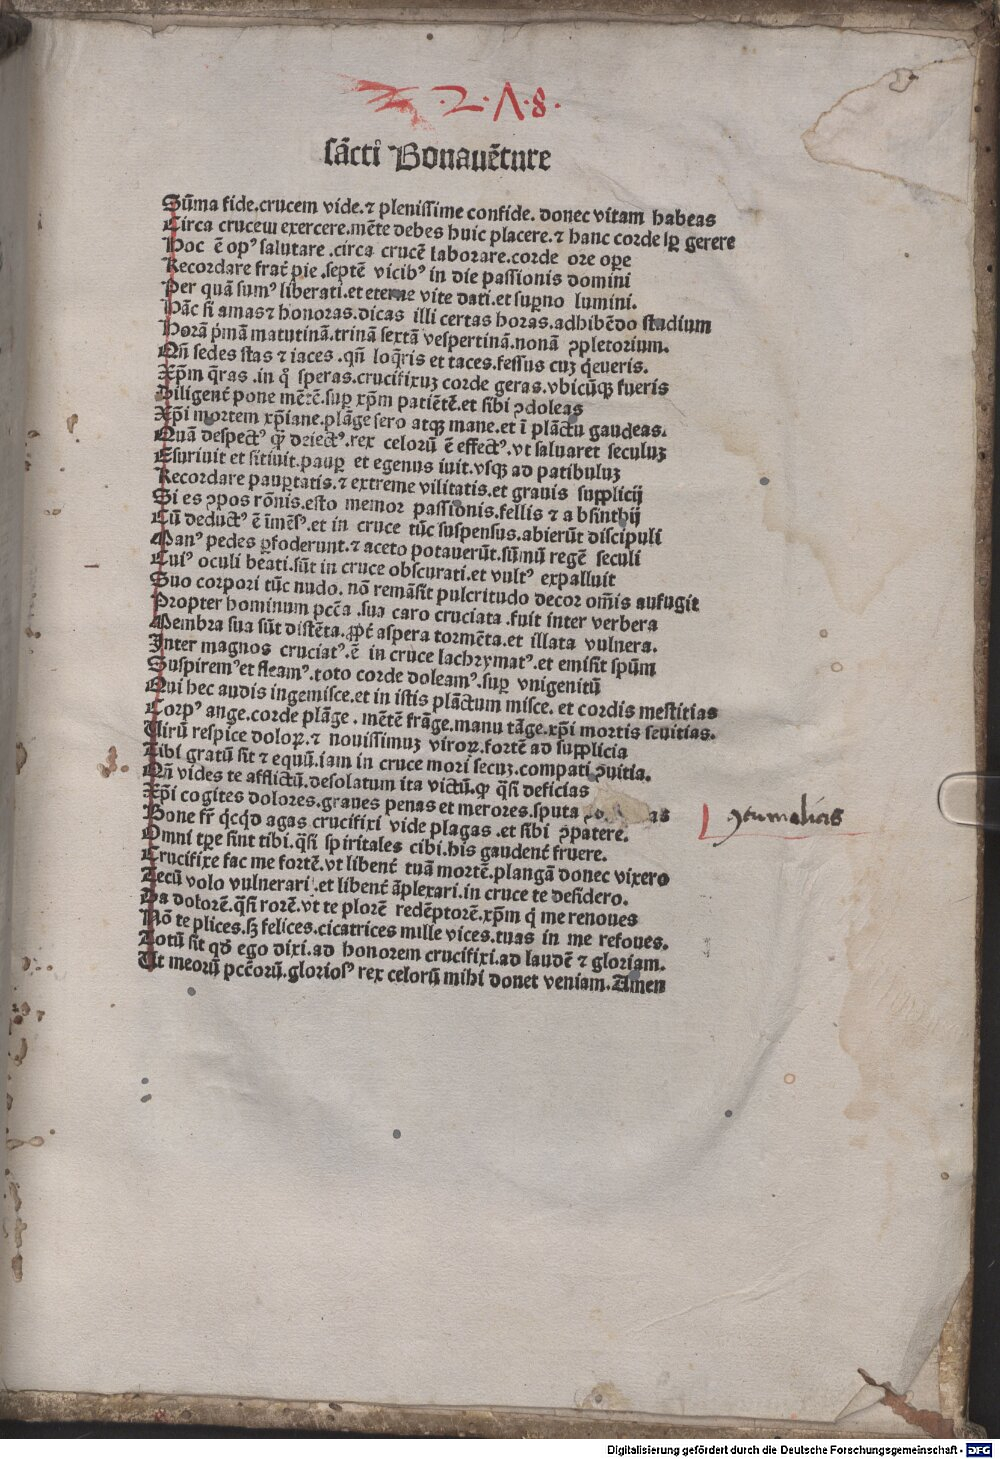 .2.Λ.8.
sācti Bonauēture
Sūma fide.crucem vide.⁊ plenissime confide. donec vitam habeas
Circa crucem exercere.mēte debes huic placere.⁊ hanc corde sꝑ gerere
Hoc ē opꝰ salutare .circa crucē laborare.corde ore ope
Recordare frat̄ pie .septē vicibꝰ in die passionis domini
Per quā sumꝰ liberati.et eterne vite dati.et suꝑno lumini.
Hāc si amas ⁊ honoras.dicas illi certas horas.adhibēdo studium
Horā p̄mā matutinā.trinā sextā vespertinā.nonā ꝯpletorium.
Qn̄ sedes stas ⁊ iaces .qn̄ loq̄ris et taces.fessus cuꝫ q̇eueris.
Xp̄m q̄ras .in q° speras.crucifixuꝫ corde geras.vbicūqꝫ fueris
Diligent̄ pone mētē.suꝑ xp̄m patiētē.et sibi ꝯdoleas
Xp̄i mortem xp̄iane.plāge sero atqꝫ mane.et ī plāctu gaudeas.
Quā despectꝰ qꝫ deiectꝰ.rex celorū ē effectꝰ.vt saluaret seculuꝫ
Esuriuit et sitiuit.pauꝑ et egenus iuit.vsqꝫ ad patibuluꝫ
Recordare pauꝑtatis.⁊ extreme vilitatis.et grauis supplicij
Si es ꝯpos rōnis.esto memor passionis.fellis ⁊ absinthij
Cū deductꝰ ē īmēsꝰ.et in cruce tūc suspensus.abierūt discipuli
Manꝰ pedes ꝑfoderunt.⁊ aceto potauerūt.sūmū regē seculi
Cuiꝰ oculi beati.sūt in cruce obscurati.et vultꝰ expalluit
Suo corpori tūc nudo. nō remāsit pulcritudo decor om̄is aufugit
Propter hominum pcc̄a .sua caro cruciata .fuit inter verbera
Membra sua sūt distēta.ꝓpt̄ aspera tormēta.et illata vulnera.
Inter magnos cruciatꝰ.ē in cruce lachrymatꝰ.et emisit spūm
Suspiremꝰ et fleamꝰ.toto corde doleamꝰ.suꝑ vnigenitū
Qui hec audis ingemisce.et in istis plāctum misce. et cordis mestitias
Corpꝰ ange.corde plāge . mētē frāge.manu tāge.xp̄i mortis seuitias.
Uirū respice doloꝝ.⁊ nouissimuꝫ viroꝝ.fortē ad supplicia
Tibi gratū sit ⁊ equū.iam in cruce mori secuꝫ.compati ꝯuitia.
Qn̄ vides te afflictū.desolatum ita victū.ꝙ q̄si deficias
Xp̄i cogites dolores.graues penas et merores.sputa
ꝯtumalicis
Bone fr̄ q̇cq̇d agas crucifixi vide plagas .et sibi ꝯpatere.
Omni tꝑe sint tibi.q̄si spiritales cibi.his gaudent̄ fruere.
Crucifixe fac me fortē.vt libent̄ tuā mortē.plangā donec vixero
Tecū volo vulnerari .et libent̄ āplexari.in cruce te desidero.
Da dolorē.q̄si rorē.vt te plorē redēptorē.xp̄m q̇ me renoues
Nō te plices.sꝫ felices.cicatrices mille vices.tuas in me refoues.
Totū sit qd̄ ego dixi.ad honorem crucifixi.ad laudē ⁊ gloriam.
Ut meorū pcc̄orū.gloriosꝰ rex celorū mihi donet veniam.Amen
Digitalisierung gefördert durch die Deutsche Forschungsgemeinschaft - DFG